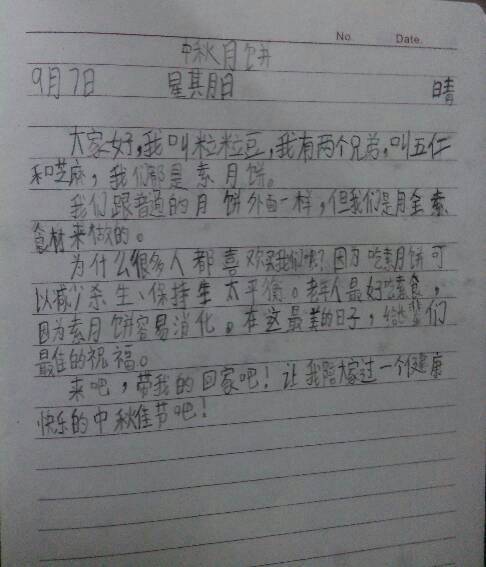 No. Date.
中秋月饼
9月7日 星其月日 晴
大家好,我叫粒粒豆,我有两个兄弟,叫五仁
和芝麻,我们都是素月饼。
我们跟普通的月饼外面一样,但我们是用全素
食材来做的。
为什么很多人都喜欢买我们呢?因为吃素月饼可
以减少杀生、保持生太平衡。老年人最好吃素食,
因为素月饼容易消化。在这最美的日子,给长辈们
最佳的祝福。
来吧,带我的回家吧!让我陪大家过一个健康
快乐的中秋佳节吧!